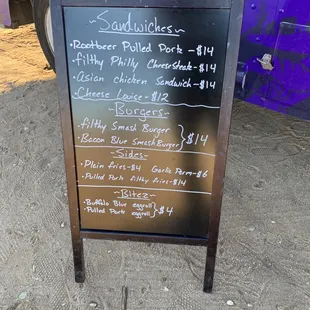 ~Sandwiches~
•Rootbeer Pulled Pork -$14
•filthy Philly CheeseSteak -$14
•Asian chicken Sandwich -$14
•Cheese Louise -$12
-Burgers-
•filthy Smash Burger
•Bacon Blue SmashBurger } $14
-Sides-
•Plain fries-$4 Garlic Parm-$6
•Pulled Pork filthy fries-$14
-Bitez-
•Buffalo Blue eggroll
•Pulled Pork eggroll } $4